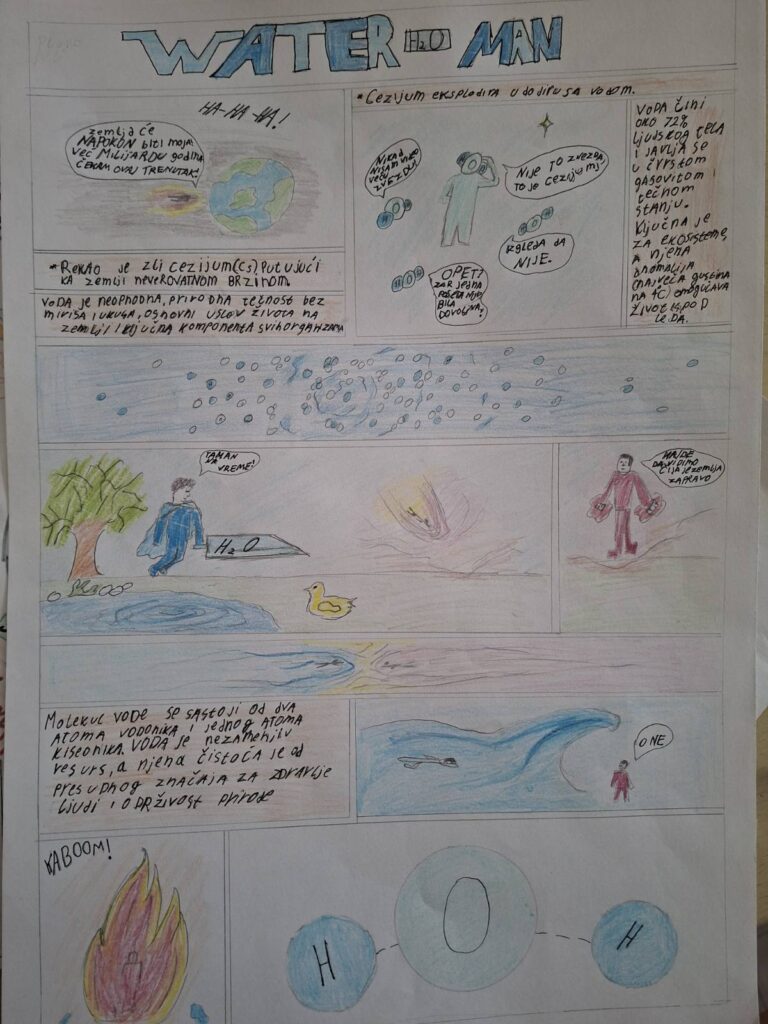 WATER H₂O MAN
HA-HA-HA!
Zemlja će
NAPOKON biti moja
već MILIJARDU godina
ČEKAM OVAJ TRENUTAK!
*Cezijum eksplodira u dodiru sa vodom.
Nikad
nisam video
veću
zvezdu!
Nije to zvezda,
to je cezijum!
Izgleda da
NIJE.
OPET?
zar jedna
bila
dovoljna?
Voda čini
oko 72%
ljudskog tela
i javlja se
u čvrstom
gasovitom i
tečnom
stanju.
Ključna je
za ekosisteme,
a njena
anomalija
(najveća gustina
na 4C) omogućava
život ispod
leda.
*Rekao je zli cezijum(Cs), putujući
ka zemlji neverovatnom brzinom
Voda je neophodna, prirodna tečnost bez
mirisa i ukusa, osnovni uslov života na
zemlji i ključna komponenta svih organizama
TAMAN
NA
VREME!
H₂O
HAJDE
DA VIDIMO
ČIJA JE ZEMLJA
ZAPRAVO
Molekul vode se sastoji od dva
atoma vodonika i jednog atoma
kiseonika. Voda je nezamenljiv
resurs, a njena čistoća je od
presudnog značaja za zdravlje
ljudi i održivost prirode
O NE
KABOOM!
H O H